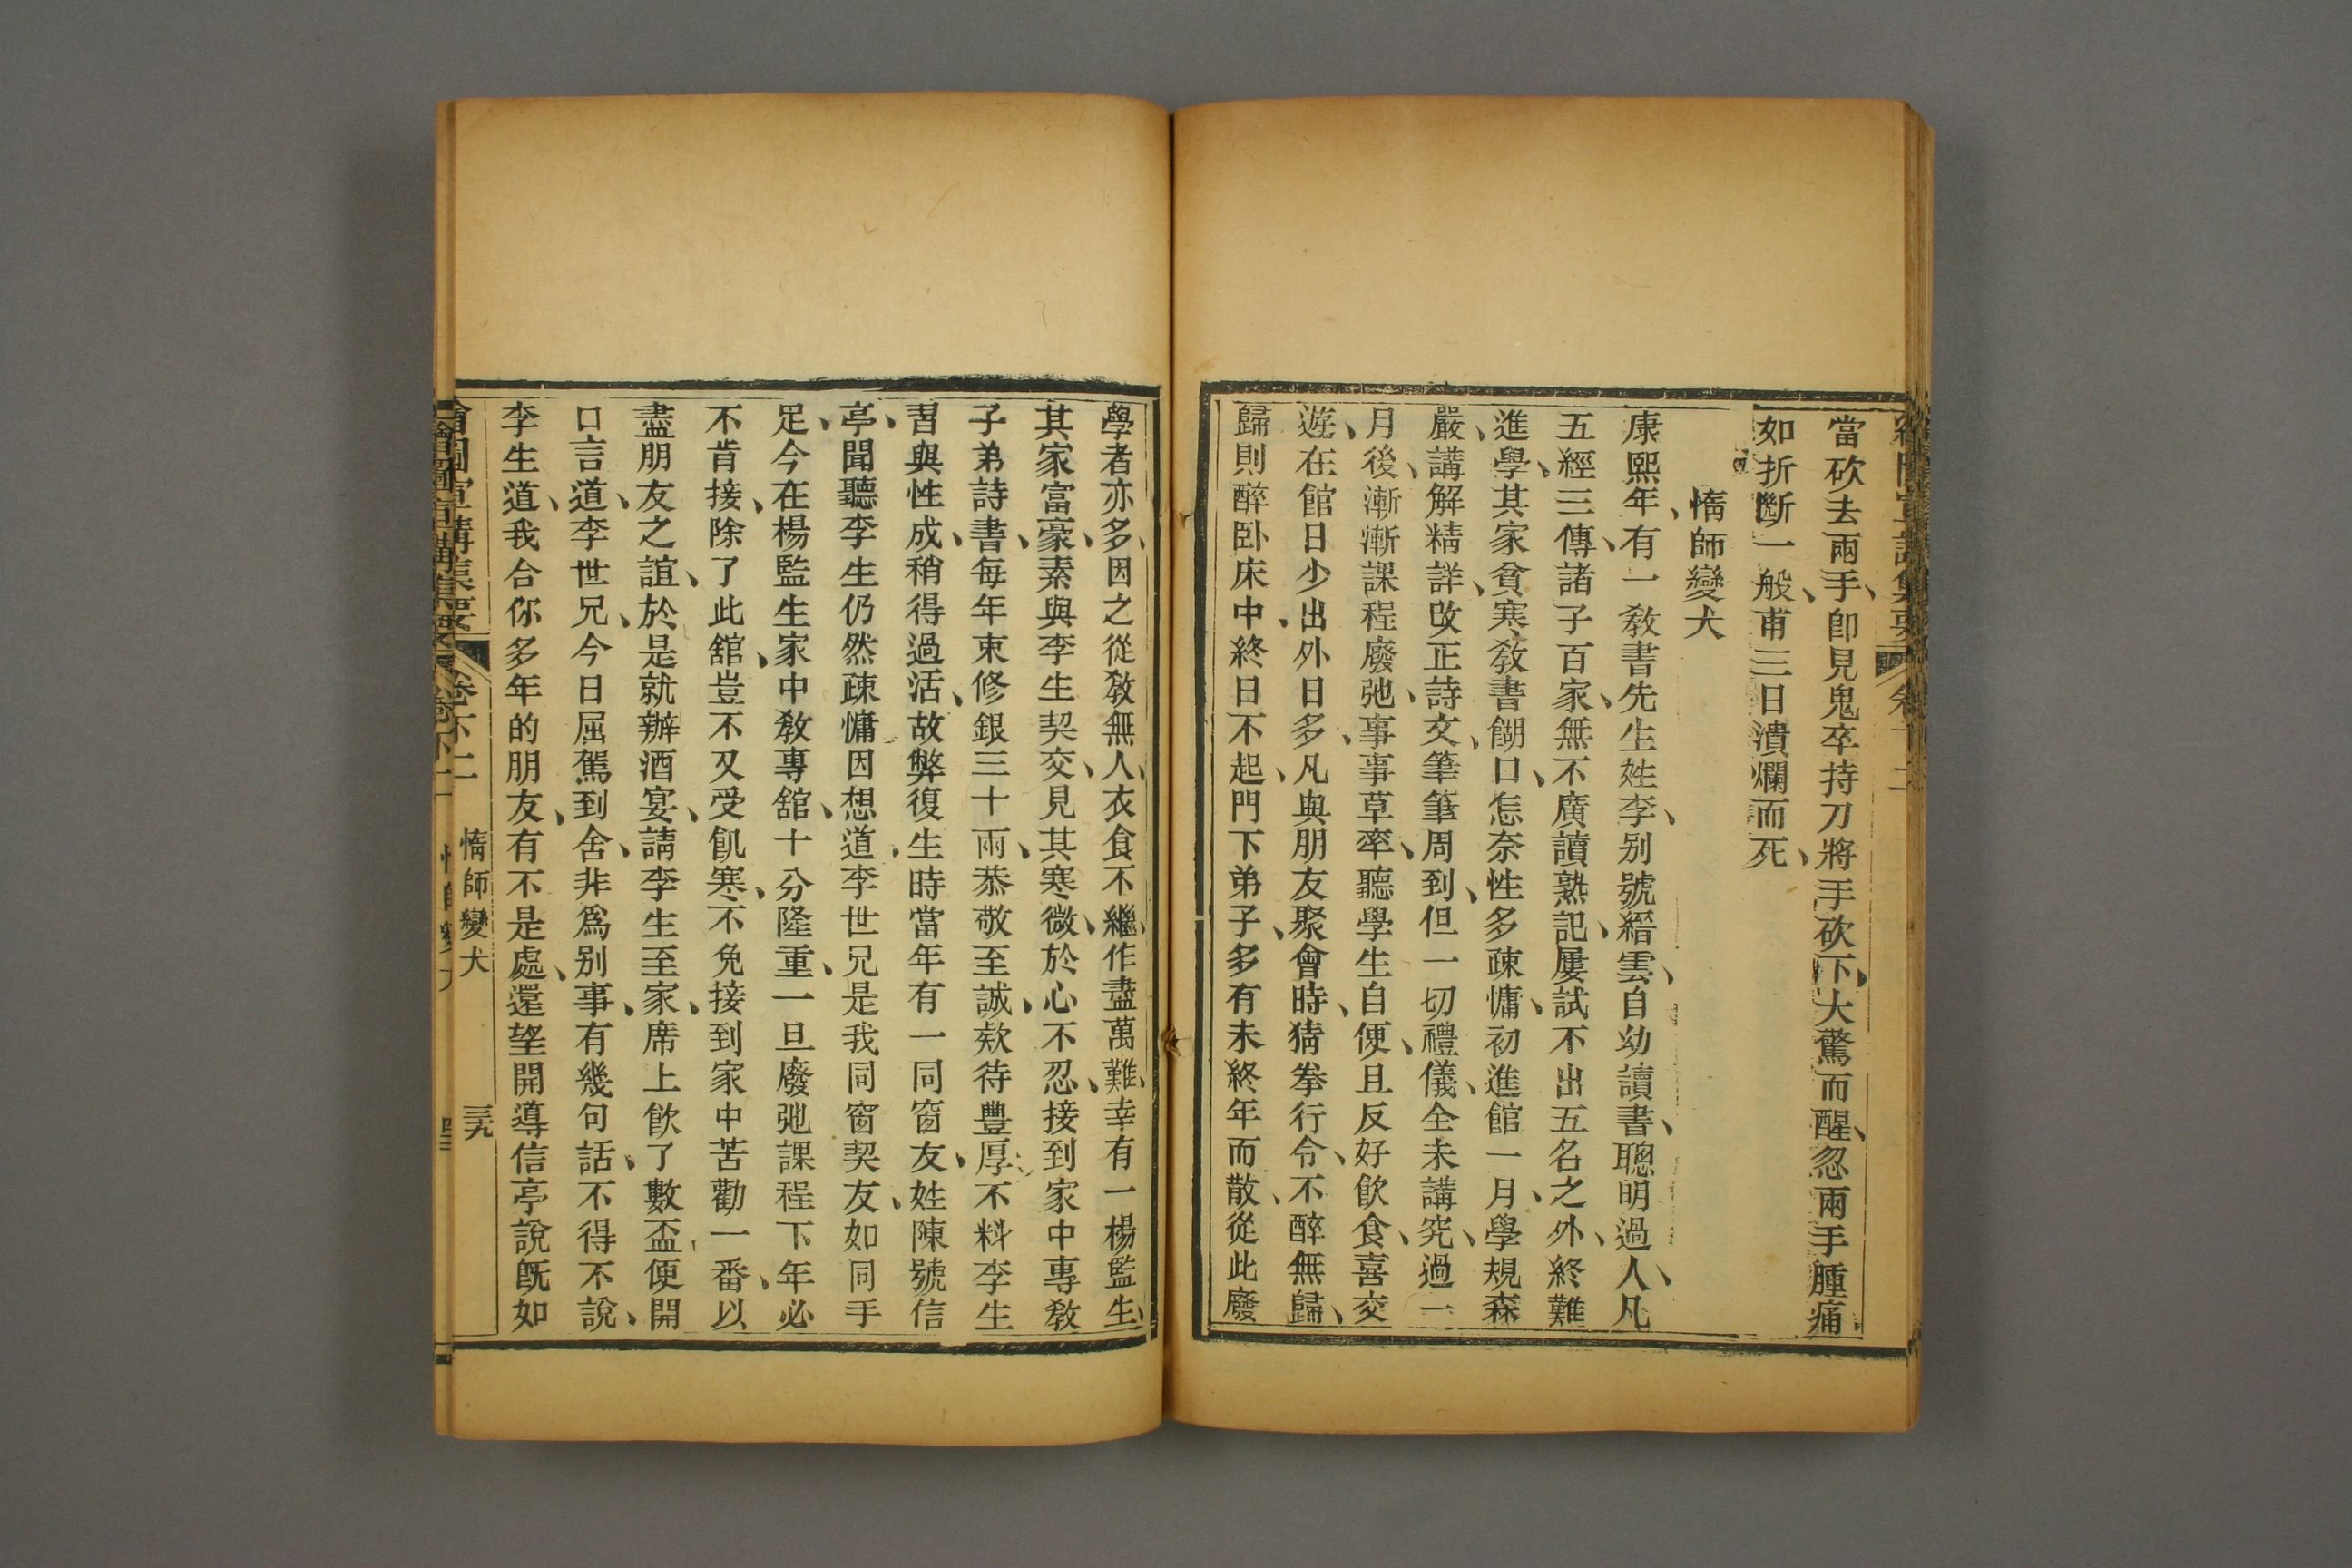 當砍去兩手、卽見鬼卒持刀將手砍下、大驚而醒、忽兩手腫痛、
如折斷一般、甫三日潰爛而死、
惰師變犬
康熙年、有一敎書先生姓李、别號縉雲、自幼讀書、聰明過人、凡
五經三傳、諸子百家、無不廣讀熟記、屢試不出五名之外、終難
進學、其家貧寒、敎書餬口、怎奈性多疎慵、初進館一月、學規森
嚴、講解精詳、改正詩文、筆筆周到、但一切禮儀、全未講究、過一
月後、漸漸課程廢弛、事事草率、聽學生自便、且反好飮食、喜交
遊、在館日少出外日多、凡與朋友聚會時、猜拳行令、不醉無歸、
歸則醉卧床中、終日不起、門下弟子、多有未終年而散、從此廢
學者亦多、因之從敎無人、衣食不繼、作盡萬難、幸有一楊監生、
其家富豪、素與李生契交、見其寒微、於心不忍、接到家中專敎
子弟詩書、每年束修銀三十兩、恭敬至誠、欵待豐厚、不料李生
習與性成、稍得過活、故弊復生、時當年有一同窗友、姓陳號信
亭、聞聽李生仍然疎慵因想道、李世兄是我同窗契友、如同手
足、今在楊監生家中敎專舘、十分隆重、一旦廢弛課程下年必
不肯接、除了此舘、豈不又受飢寒、不免接到家中苦勸一番、以
盡朋友之誼、於是就辦酒宴、請李生至家、席上飮了數盃、便開
口言道、李世兄、今日屈駕到舍、非爲别事、有幾句話、不得不說、
李生道、我合你多年的朋友、有不是處、還望開導信亭說旣如
會圖宣講集要 卷下二 惰師變犬 三九